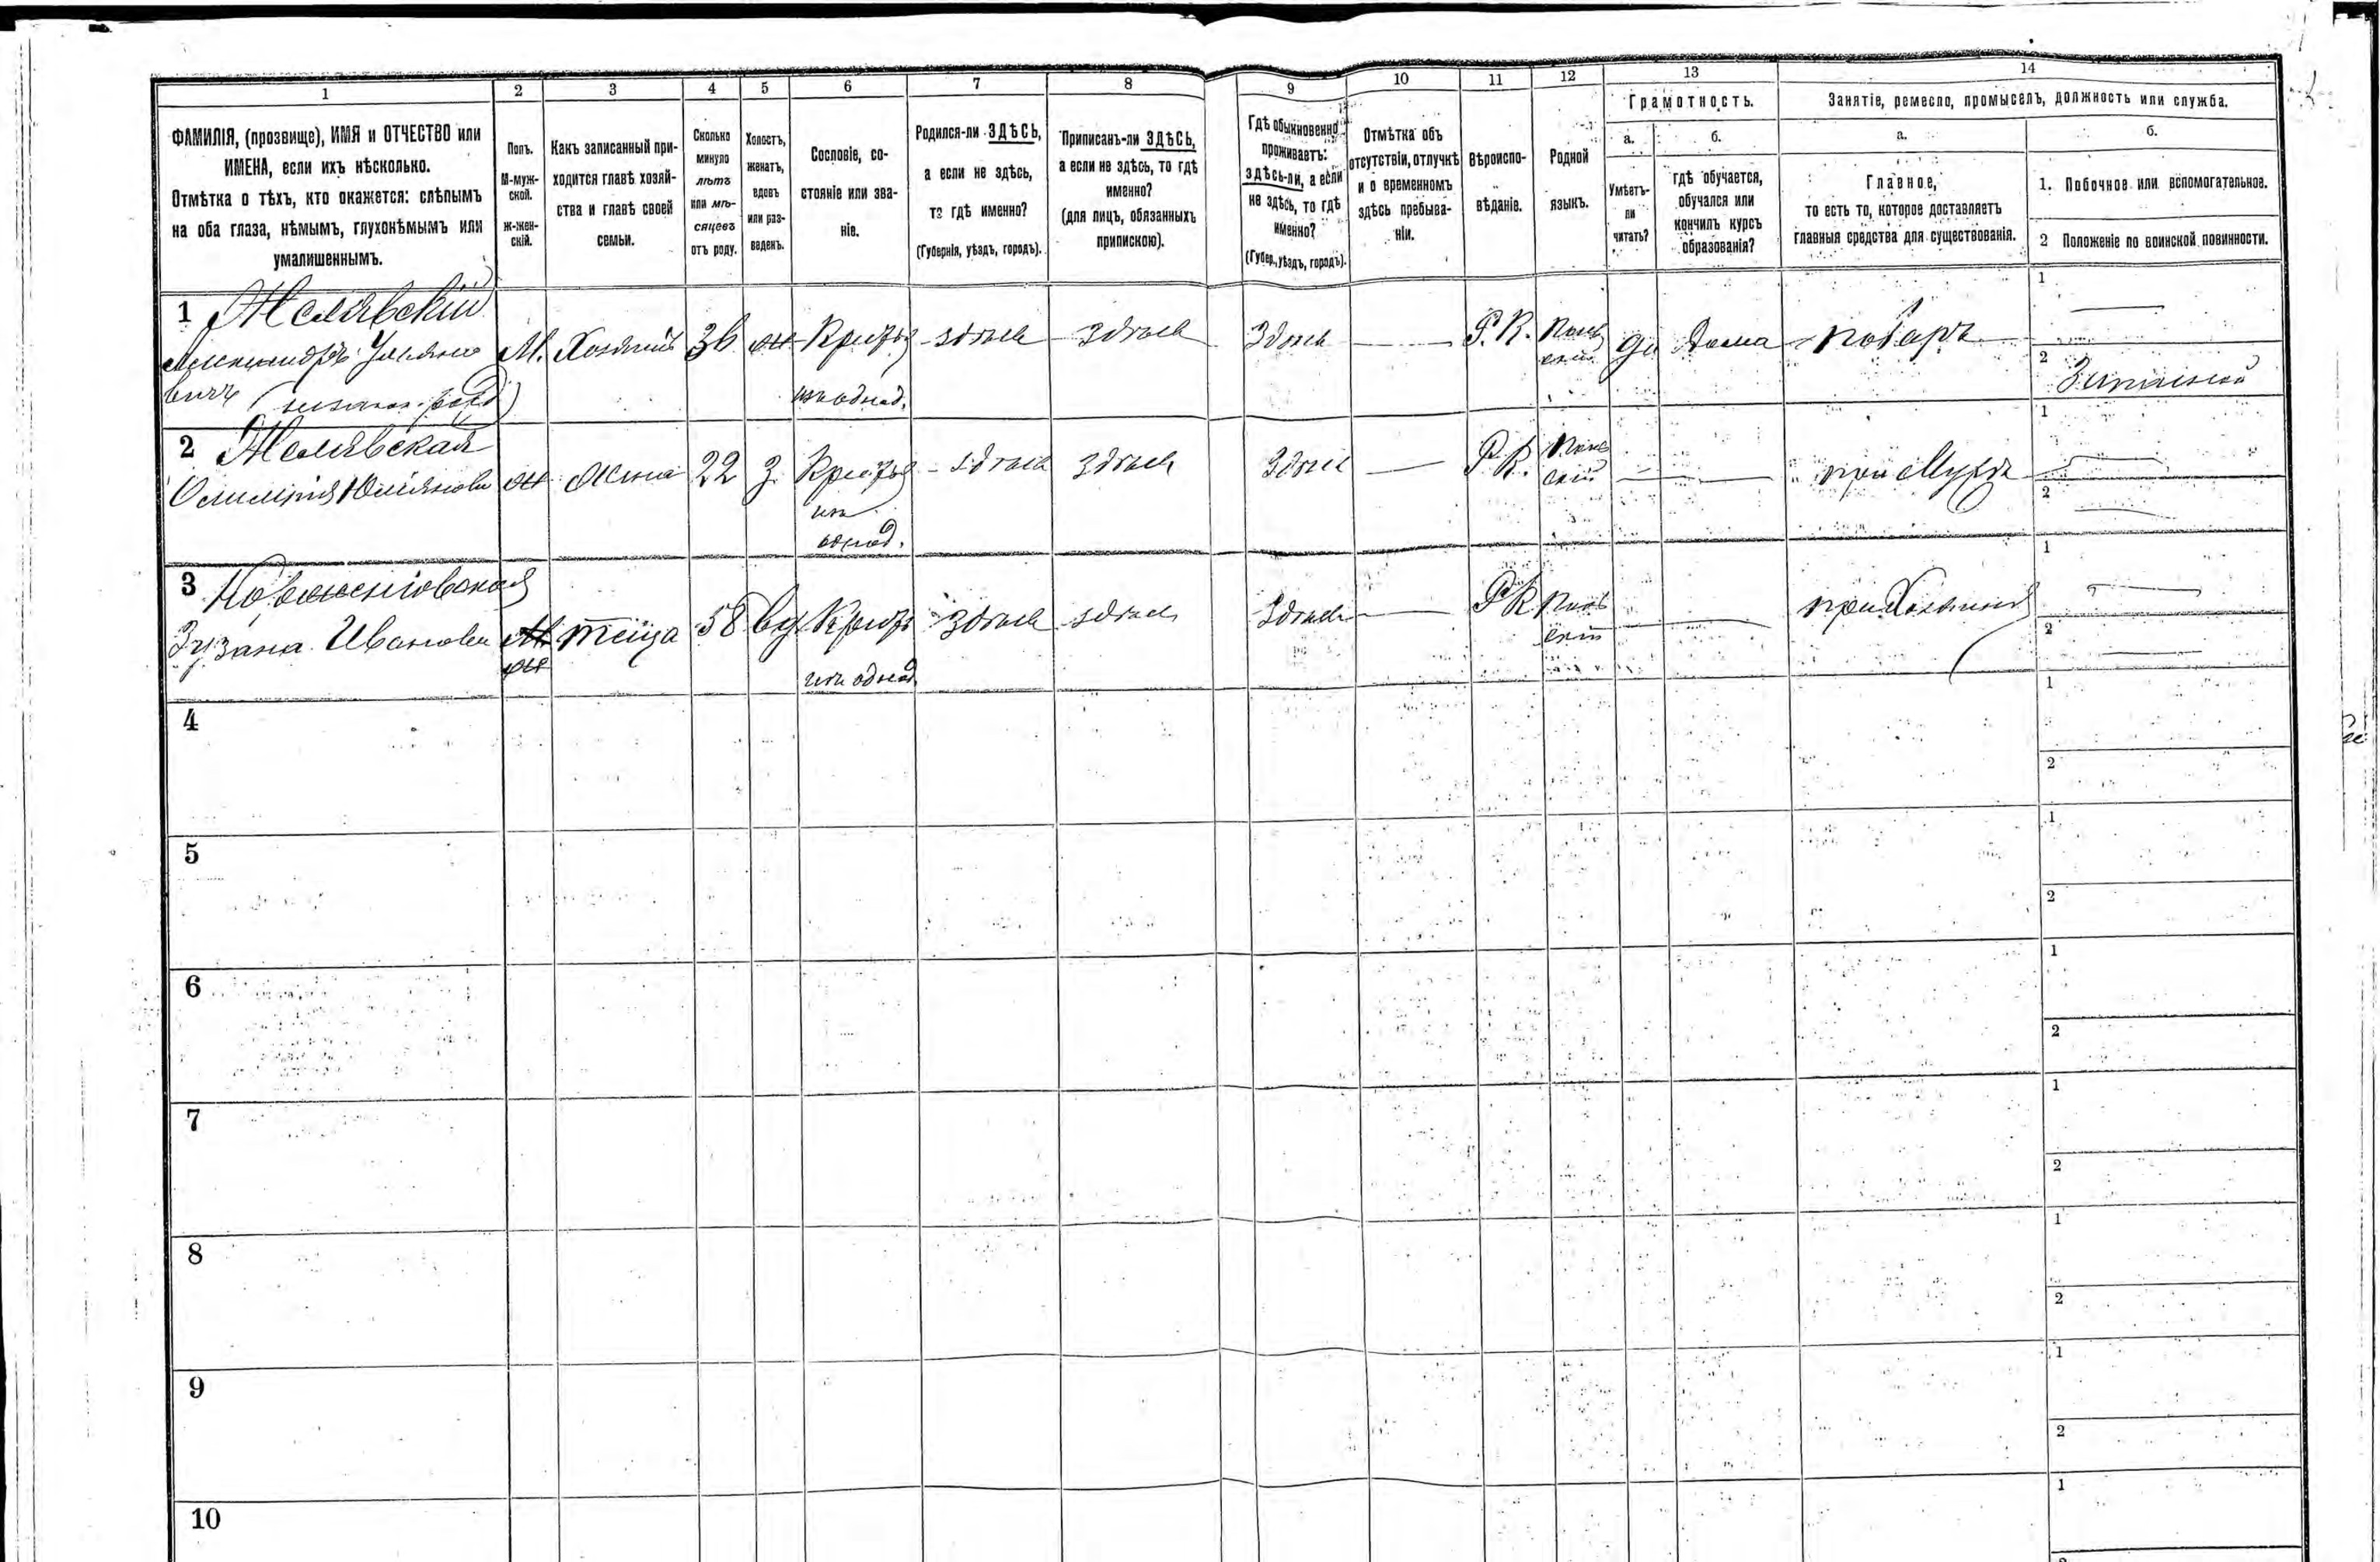 1 2 3 4 5 6 7 8 9 10 11 12 13 14
ФАМИЛІЯ, (прозвище), ИМЯ и ОТЧЕСТВО или
ИМЕНА, если ихъ нѣсколько.
Отмѣтка о тѣхъ, кто окажется: слѣпымъ
на оба глаза, нѣмымъ, глухонѣмымъ или
умалишеннымъ.
Полъ.
М-муж-
ской.
ж-жен-
скій.
Какъ записанный при-
ходится главѣ хозяй-
ства и главѣ своей
семьи.
Сколько
минуло
лѣтъ
или мѣ-
сяцевъ
отъ роду.
Холостъ,
женатъ,
вдовъ
или раз-
веденъ.
Сословіе, со-
стояніе или зва-
ніе.
Родился-ли ЗДѢСЬ,
а если не здѣсь,
то гдѣ именно?
(Губернія, уѣздъ, городъ).
Приписанъ-ли ЗДѢСЬ,
а если не здѣсь, то гдѣ
именно?
(для лицъ, обязанныхъ
припискою).
Гдѣ обыкновенно
проживаетъ:
здѣсь-ли, а если
не здѣсь, то гдѣ
именно?
(Губер., уѣздъ, городъ).
Отмѣтка объ
отсутствіи, отлучкѣ
и о временномъ
здѣсь пребыва-
ніи.
Вѣроиспо-
вѣданіе.
Родной
языкъ.
Грамотность.
а.
Умѣетъ-
ли
читать?
б.
гдѣ обучается,
обучался или
кончилъ курсъ
образованія?
Занятіе, ремесло, промыселъ, должность или служба.
а.
Главное,
то есть то, которое доставляетъ
главныя средства для существованія.
б.
1. Побочное или вспомогательное.
2 Положеніе по воинской повинности.
1
М. Хозяинъ 36 ж Крестья здѣсь здѣсь Здѣсь — Р.К. Поль да Дома поваръ
Александръ
вичъ
изъ однод.
скій
1 —
2
2
ж Жена 22 з. Крестья здѣсь здѣсь Здѣсь — Р.К. Поль — — при Мужѣ
изъ
однод.
скій
1 —
2 —
3
Ивановна
ж теща 58 вд Крестья здѣсь здѣсь Здѣсь — РК Поль — — при Хозяинѣ
изъ однод.
скій
1 —
2 —
4
1
2
5
1
2
6
1
2
7
1
2
8
1
2
9
1
2
10
1